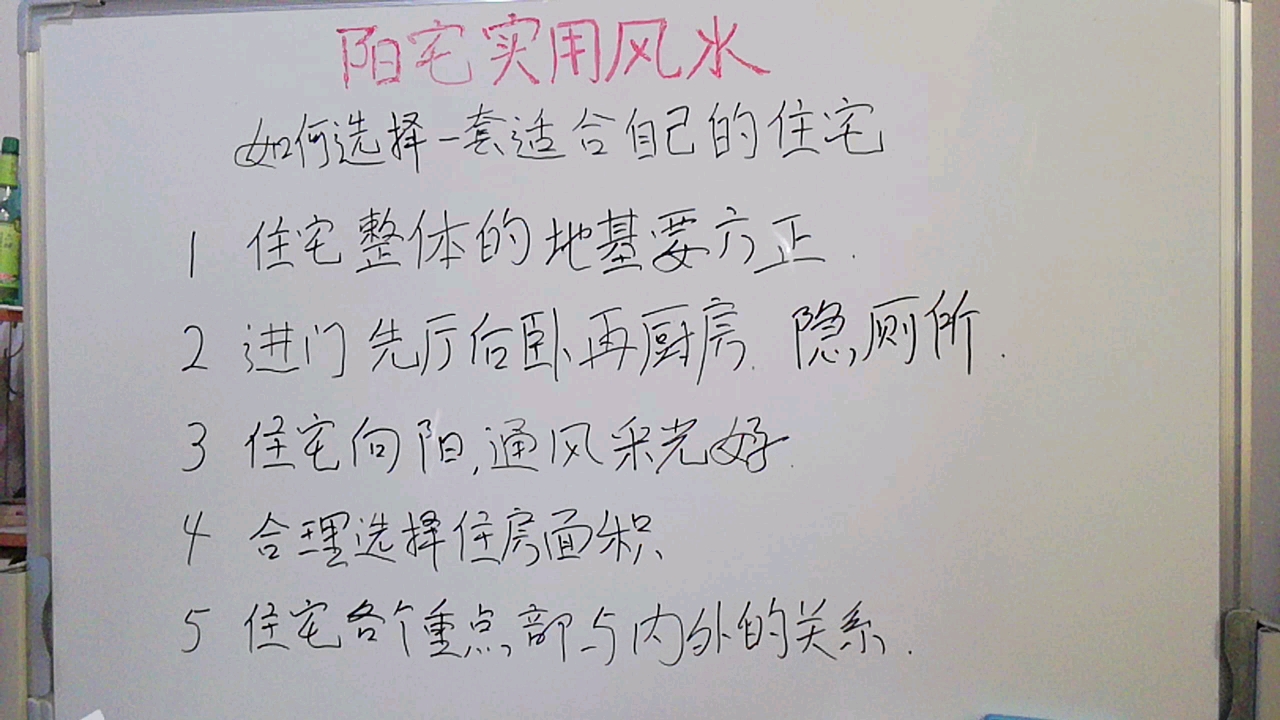 阳宅实用风水
如何选择一套适合自己的住宅
1 住宅整体的地基要方正.
2 进门先厅后卧再厨房.隐厕所.
3 住宅向阳,通风采光好.
4 合理选择住房面积
5 住宅各个重点部与内外的关系.